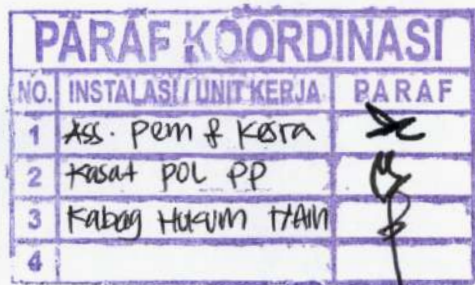 PARAF KOORDINASI
NO. INSTALASI / UNIT KERJA PARAF
1 Ass. Pem & Kesra
2 Kasat POL PP
3 Kabag HUKUM HAM
4